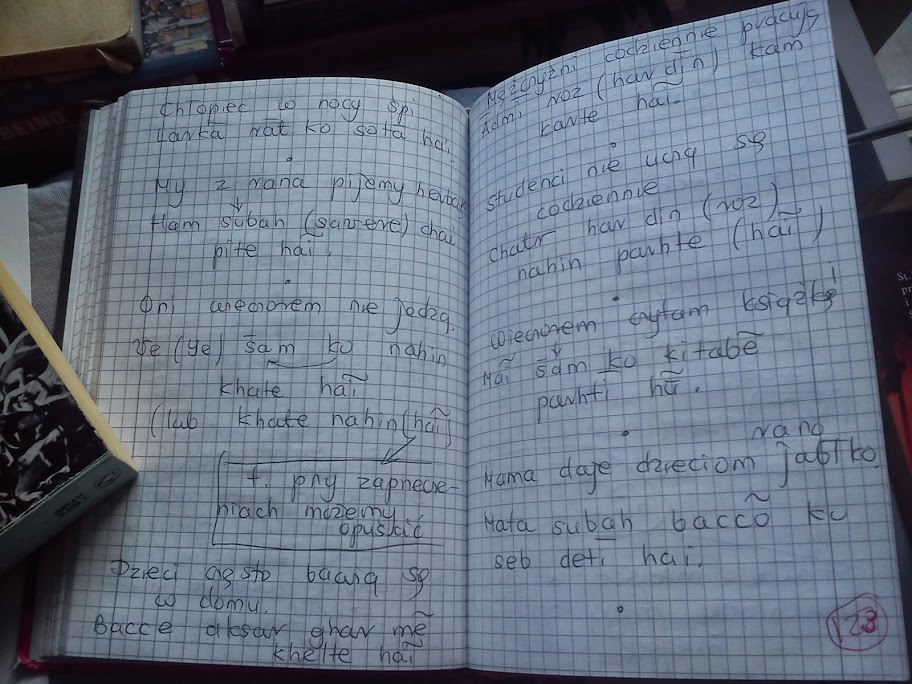 Chłopiec w nocy śpi.
Larka rāt ko sota hai.
My z rana pijemy herbatę
Ham subah (savere) chai
pite haĩ.
Oni wieczorem nie jedzą.
Ve (Ye) šam ko nahin
khate haĩ
(lub khate nahin (haĩ)
t. przy zaprzecze-
niach możemy
opuścić
Dzieci często bawią się
w domu.
Bacce aksar ghar mẽ
khelte haĩ
Mężczyźni codziennie pracują
Admi roz (har din) kam
karte haĩ.
studenci nie uczą się
codziennie
chatr har din (roz)
nahin parhte (haĩ)
wieczorem czytam książkę
Maĩ šam ko kitabẽ
parhti hũ.
rano
Mama daje dzieciom jabłko.
Mata subah baccõ ko
seb deti hai.
123
BEING